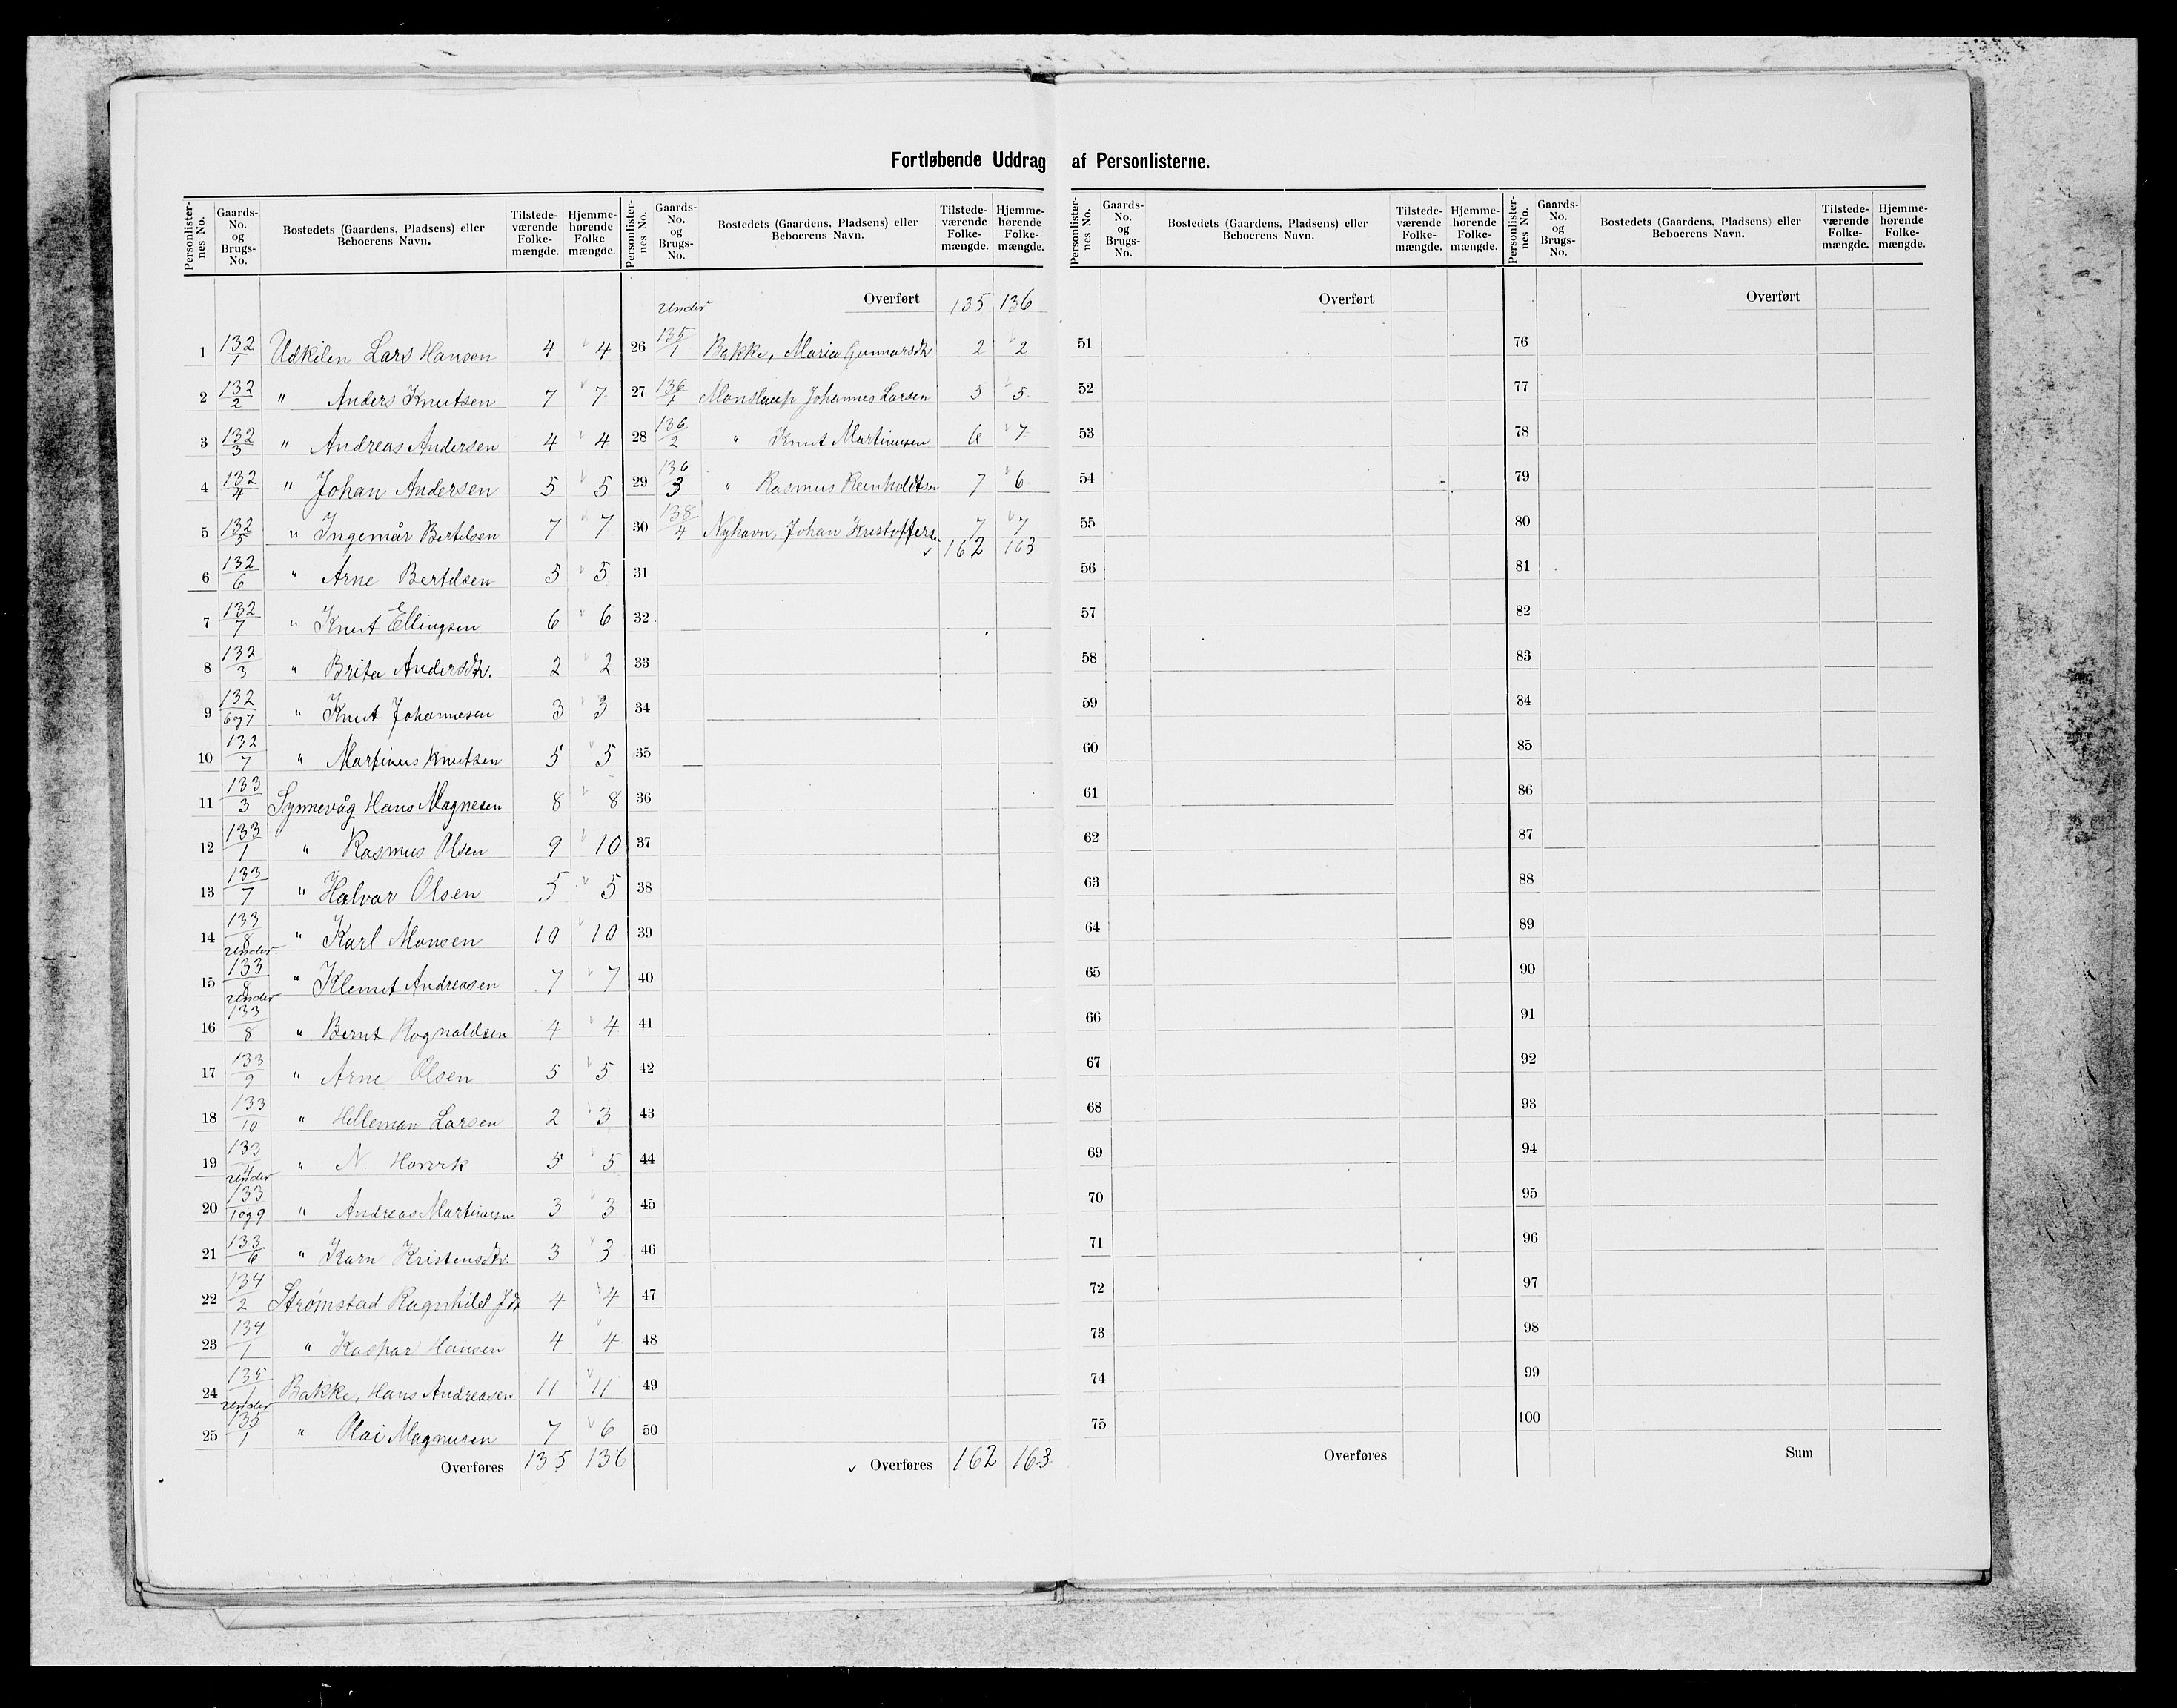 Fortløbende Uddrag af Personlisterne.
Personlister-nes No. Gaards-No. og Brugs-No. Bostedets (Gaardens, Pladsens) eller Beboerens Navn. Tilstede-værende Folke-mængde. Hjemme-hørende Folke mængde.
1 132/1 Udkilen Lars Hansen 4 4
2 132/2 " Anders Knutsen 7 7
3 132/3 " Andreas Andersen 4 4
4 132/4 " Johan Andersen 5 5
5 132/5 " Ingemår Bertelsen 7 7
6 132/6 " Arne Bertelsen 5 5
7 132/7 " Knut Ellingsen 6 6
8 132/3 " Brita Andersdtr. 2 2
9 132/6og7 " Knut Johannesen 3 3
10 132/7 " Martinus Knutsen 5 5
11 133/3 Synnevåg Hans Magnesen 8 8
12 133/1 " Rasmus Olsen 9 10
13 133/7 " Halvar Olsen 5 5
14 133/8 " Karl Monsen 10 10
15 under 133/8 " Klemet Andreasen 7 7
16 under 133/8 " Bernt Rognaldsen 4 4
17 133/9 " Arne Olsen 5 5
18 133/10 " Hilleman Larsen 2 3
19 133/4 " N. 5 5
20 under 133/1og9 " Andreas Martinusen 3 3
21 133/6 " Karn Kristensdtr. 3 3
22 134/2 Strømstad Ragnhild Jdt 4 4
23 134/1 " Kaspar Hansen 4 4
24 135/1 Bakke, Hans Andreasen 11 11
25 under 135/1 " Olai Magnusen 7 6
Overføres 135 136
Personlister-nes No. Gaards-No. og Brugs-No. Bostedets (Gaardens, Pladsens) eller Beboerens Navn. Tilstede-værende Folke-mængde. Hjemme-hørende Folke-mængde.
Overført 135 136
26 Under 135/1 Bakke, Maria Gunnarsdtr 2 2
27 136/1 Monslaup Johannes Larsen 5 5
28 136/2 " Knut Martinusen 6 7
29 136/3 " Rasmus Reinholdtsen 7 6
30 138/4 Nyhavn, Johan Kristoffersen 7 7
162 163
31
32
33
34
35
36
37
38
39
40
41
42
43
44
45
46
47
48
49
50
Overføres 162 163
Personlister-nes No. Gaards-No. og Brugs-No. Bostedets (Gaardens, Pladsens) eller Beboerens Navn. Tilstede-værende Folke-mængde. Hjemme-hørende Folke-mængde.
Overført
51
52
53
54
55
56
57
58
59
60
61
62
63
64
65
66
67
68
69
70
71
72
73
74
75
Overføres
Personlister-nes No. Gaards-No. og Brugs-No. Bostedets (Gaardens, Pladsens) eller Beboerens Navn. Tilstede-værende Folke-mængde. Hjemme-hørende Folke-mængde.
Overført
76
77
78
79
80
81
82
83
84
85
86
87
88
89
90
91
92
93
94
95
96
97
98
99
100
Sum